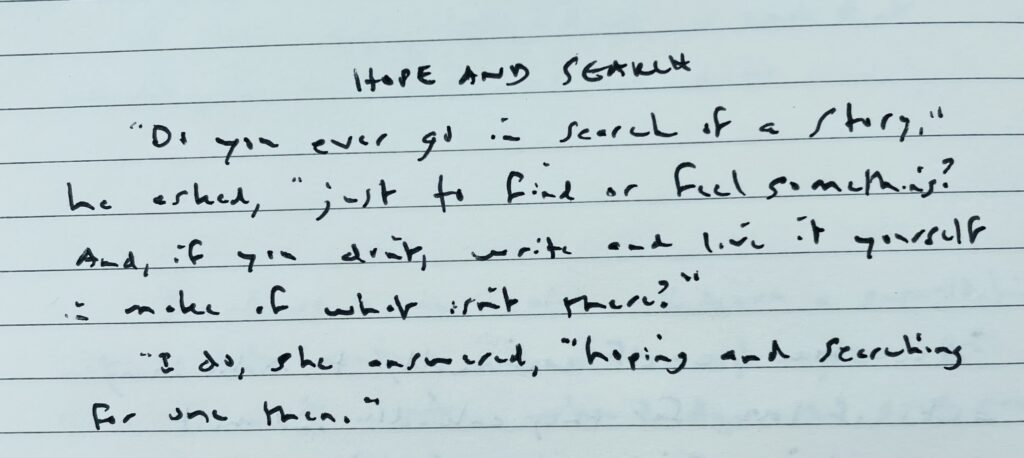 HOPE AND SEARCH
"Do you ever go in search of a story,"
he asked, "just to find or feel something?
And, if you don't, write and live it yourself
in make of what isn't there?"
"I do, she answered, "hoping and searching
for one then."